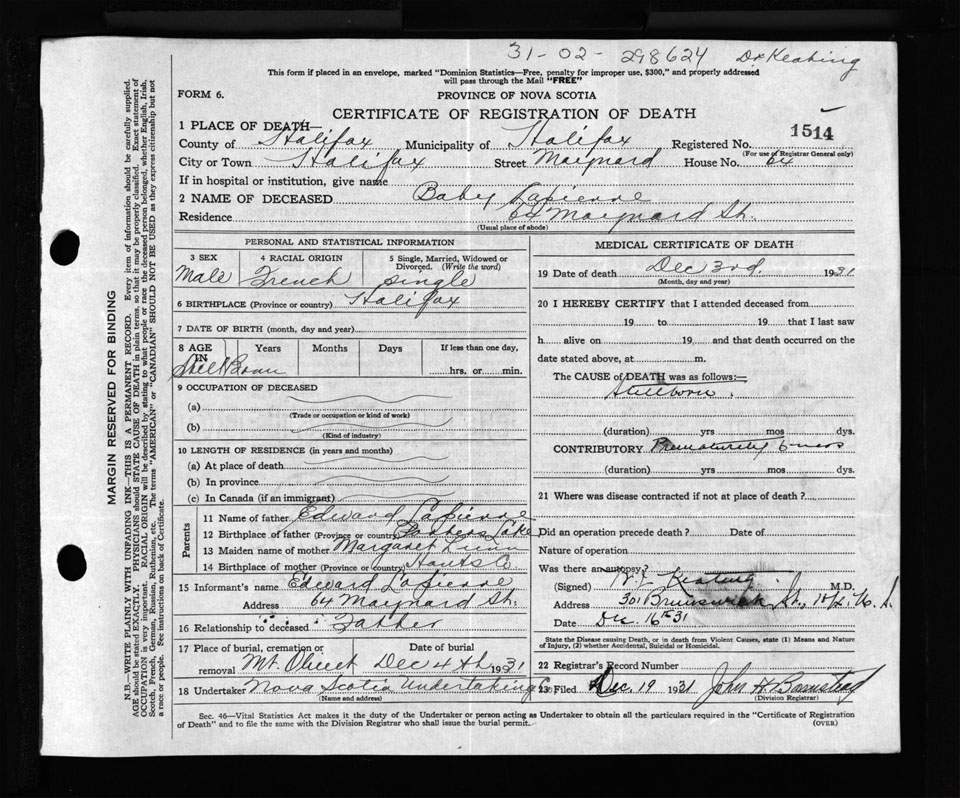 31-02-298624 Dr Keating
This form if placed in an envelope, marked "Dominion Statistics—Free, penalty for improper use, $300," and properly addressed
will pass through the Mail "FREE"
FORM 6.
PROVINCE OF NOVA SCOTIA
CERTIFICATE OF REGISTRATION OF DEATH
1 PLACE OF DEATH—
County of Halifax Municipality of Halifax Registered No. 1514
(For use of Registrar General only)
City or Town Halifax Street Maynard House No. 64
If in hospital or institution, give name
2 NAME OF DECEASED Baby Lapierre
Residence 64 Maynard St.
(Usual place of abode)
PERSONAL AND STATISTICAL INFORMATION
3 SEX 4 RACIAL ORIGIN 5 Single, Married, Widowed or Divorced. (Write the word)
Male French Single
6 BIRTHPLACE (Province or country) Halifax
7 DATE OF BIRTH (month, day and year)
8 AGE IN Years Months Days If less than one day,
Still Born hrs. or min.
9 OCCUPATION OF DECEASED
(a)
(Trade or occupation or kind of work)
(b)
(Kind of industry)
10 LENGTH OF RESIDENCE (in years and months)
(a) At place of death
(b) In province
(c) In Canada (if an immigrant)
Parents
11 Name of father Edward Lapierre
12 Birthplace of father (Province or country)
13 Maiden name of mother Margaret
14 Birthplace of mother (Province or country) Hants Co
15 Informant's name Edward Lapierre
Address 64 Maynard St.
16 Relationship to deceased Father
17 Place of burial, cremation or removal Date of burial
Mt. Olivet Dec 4th 1931
18 Undertaker Nova Scotia Undertaking Co
(Name and address)
MEDICAL CERTIFICATE OF DEATH
19 Date of death Dec 3rd. 1931
(Month, day and year)
20 I HEREBY CERTIFY that I attended deceased from
19 to 19 that I last saw
h alive on 19 and that death occurred on the
date stated above, at m.
The CAUSE of DEATH was as follows:—
Stillborn.
(duration) yrs mos dys.
CONTRIBUTORY Prematurity 6 mos
(duration) yrs mos dys.
21 Where was disease contracted if not at place of death?
Did an operation precede death? Date of
Nature of operation
Was there an autopsy?
(Signed) Keating M.D.
Address 301 Brunswick St., Hfx. N.S.
Date Dec. 16th 31
State the Disease causing Death, or in death from Violent Causes, state (1) Means and Nature
of Injury, (2) whether Accidental, Suicidal or Homicidal.
22 Registrar's Record Number
23 Filed Dec 19 1931 John A.
(Division Registrar)
Sec. 46—Vital Statistics Act makes it the duty of the Undertaker or person acting as Undertaker to obtain all the particulars required in the "Certificate of Registration
of Death" and to file the same with the Division Registrar who shall issue the burial permit.
(OVER)
MARGIN RESERVED FOR BINDING
N.B.—WRITE PLAINLY WITH UNFADING INK—THIS IS A PERMANENT RECORD. Every item of information should be carefully supplied.
AGE should be stated EXACTLY. PHYSICIANS should STATE CAUSE OF DEATH in plain terms, so that it may be properly classified. Exact statement of
OCCUPATION is very important. RACIAL ORIGIN will be described by stating to what people or race the deceased person belonged, whether English, Irish,
Scotch, French, German, Russian, Ruthenian, etc. The terms "AMERICAN" or "CANADIAN" SHOULD NOT BE USED as they express citizenship but not
a race or people. See instructions on back of Certificate.